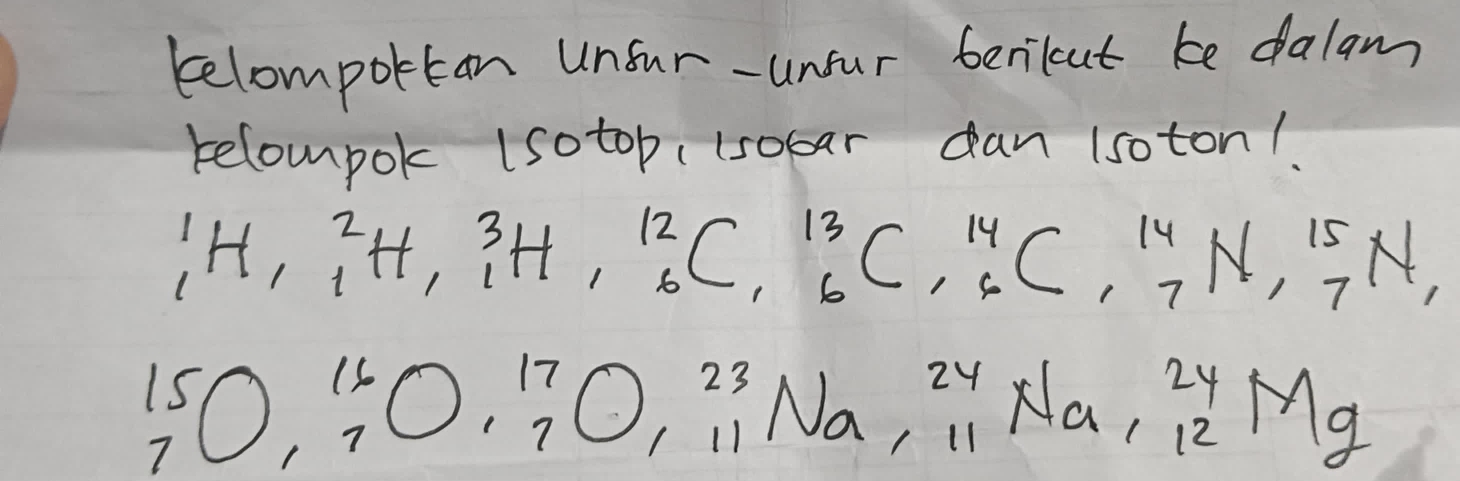 kelompokkan unsur-unsur berikut ke dalam
kelompok Isotop, Isobar dan Isoton!
¹₁H, ²₁H, ³₁H, ¹²₆C, ¹³₆C, ¹⁴₆C, ¹⁴₇N, ¹⁵₇N,
¹⁵₇O, ¹⁶₇O, ¹⁷₇O, ²³₁₁Na, ²⁴₁₁Na, ²⁴₁₂Mg